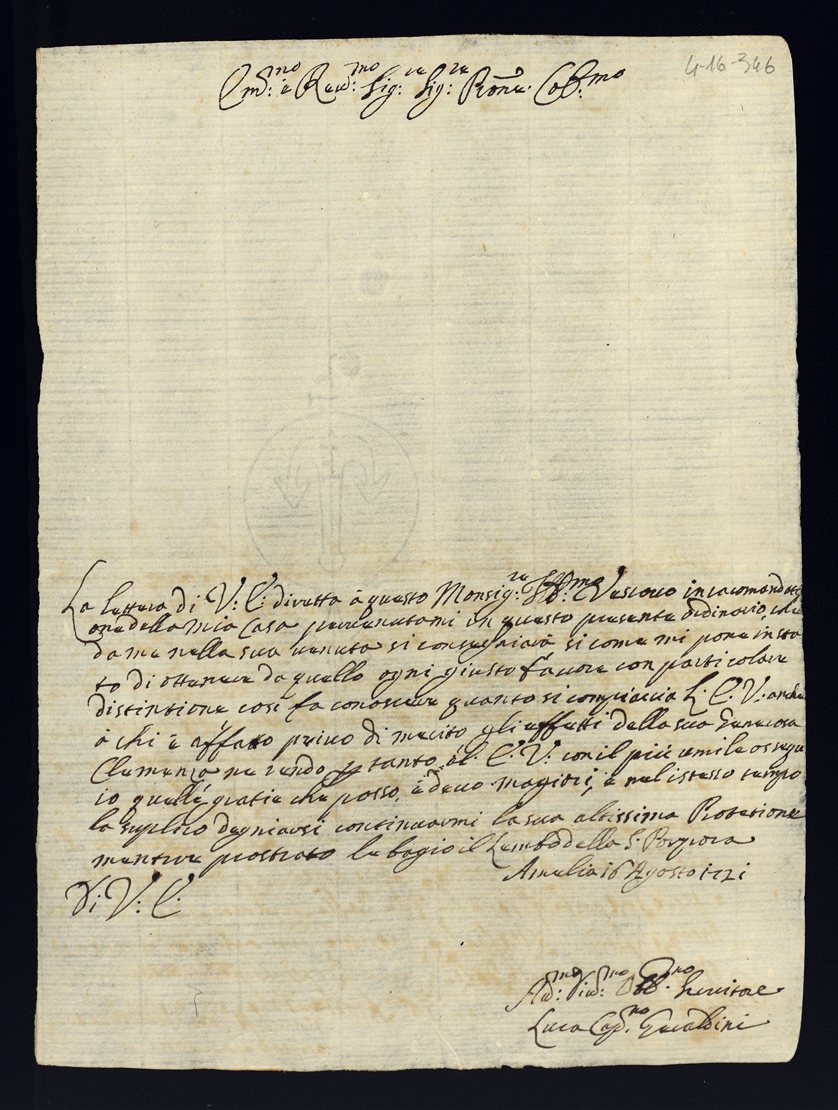 4-16-346
Em:mo e Rev:mo Sig:re Sig:re Prone Col:mo
La lettera di V: E: diretta à questo Monsig:re Ill:mo Vescovo in racomandati
one della mia Casa pervenutami in questo presente ordinario,
da me nella sua venuta si consegniarà si come mi pone in sta
to di ottenere da quello ogni giusto favore con particolare
distintione così fa conoscere quanto si compiaccia L: E: V:
à chi è affatto privo di merito gli effetti della sua Generosa
Clemenza ne rendo p tanto al: E: V: con il più umile ossequ
io quelle gratie che posso, e devo magiori, e nel istesso tempo
la suplico degniarsi continuarmi la sua altissima Protetione
mentre prostrato le bagio il Lembo della S: Porpora
Di V: E:
Amelia 16 Agosto 1721
Div:mo Obb:mo Servitore
Luca Geraldini